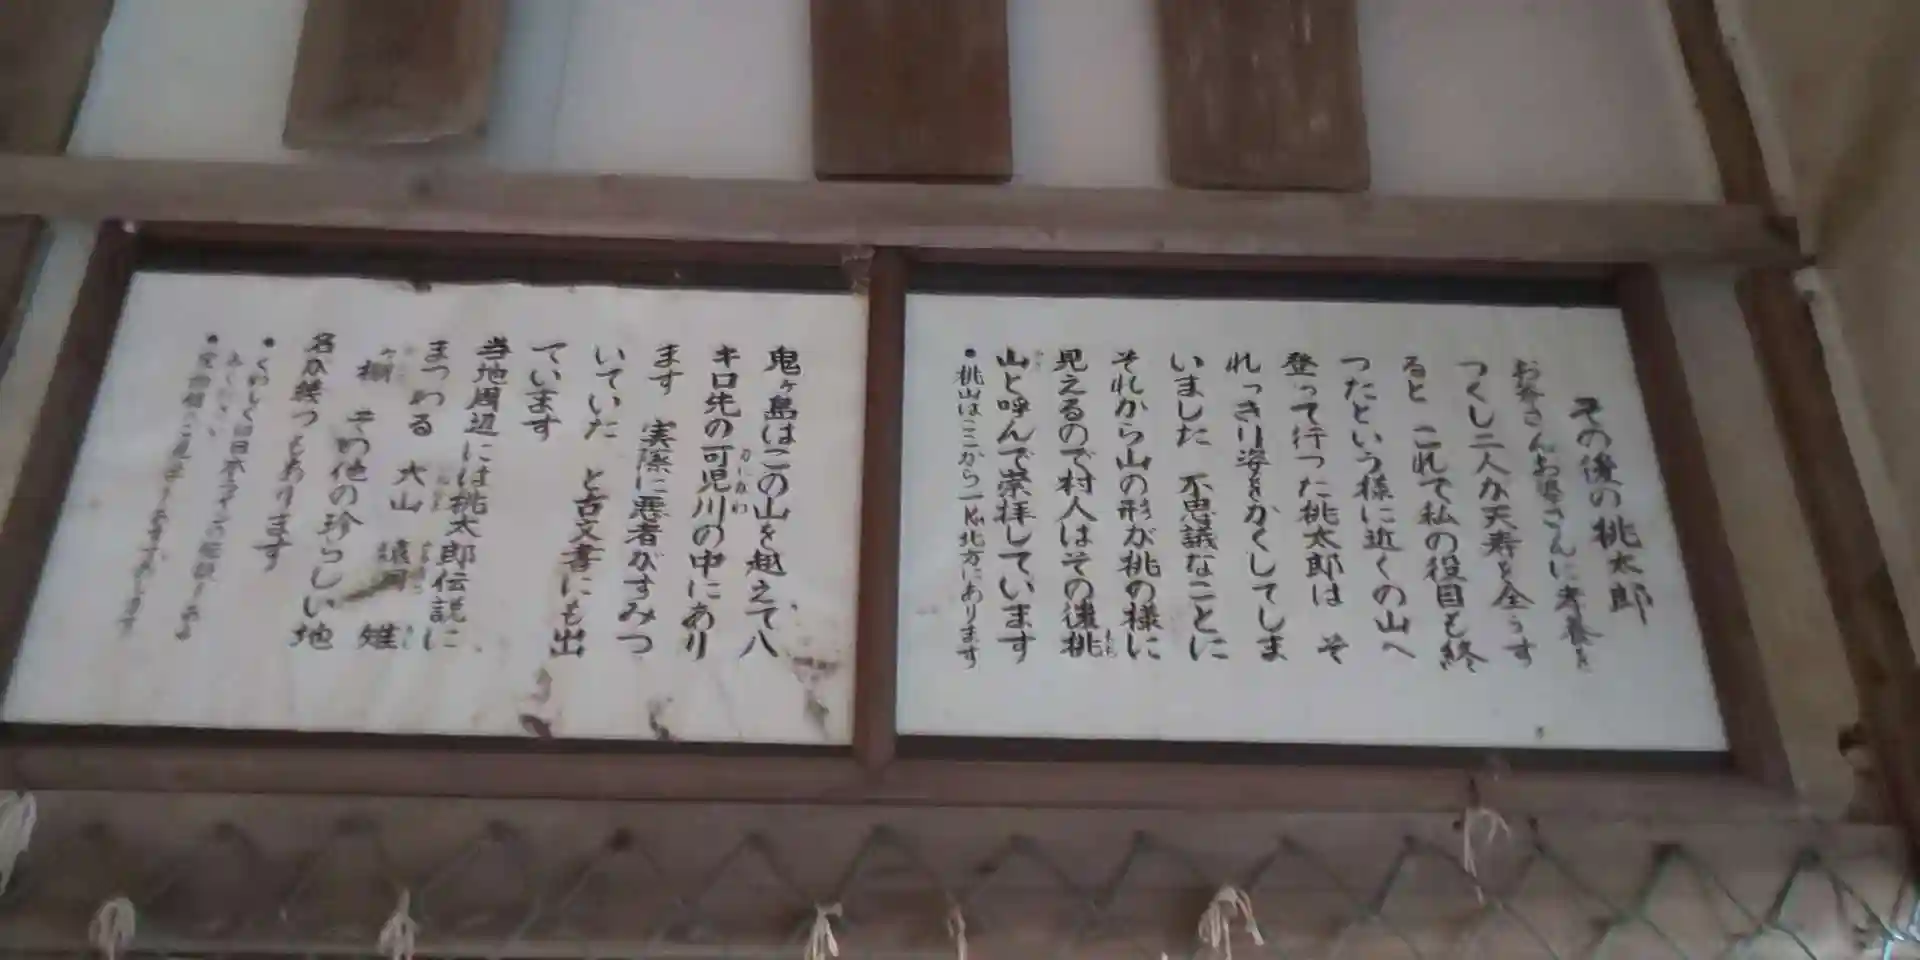 その後の桃太郎
お爺さんお婆さんに孝養を
つくし二人が天寿を全うす
ると これで私の役目も終
つたという様に近くの山へ
登って行った桃太郎は そ
れっきり姿をかくしてしま
いました 不思議なことに
それから山の形が桃の様に
見えるので村人はその後桃
山と呼んで崇拝しています
•桃山はここから一Km北方にあります
鬼ヶ島はこの山を越えて八
キロ先の可児川の中にあり
ます 実際に悪者がすみつ
いていた と古文書にも出
ています
当地周辺には桃太郎伝説に
まつわる 犬山 猿洞 雉
ヶ棚 その他の珍らしい地
名が幾つもあります
•くわしくは日本ライン